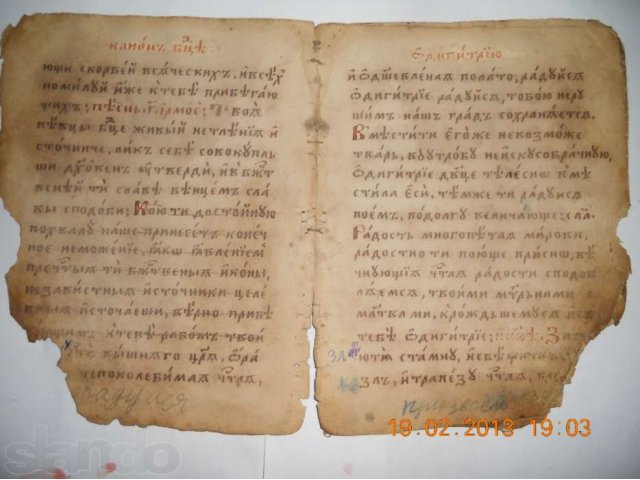 канонъ бцѣ
ющи скорбей всѧческихъ, и всѣхъ
помилуй йже к тебѣ прибѣгаю
щихъ; пѣснь, г҃. ірмос; Твоѧ
пѣвцы бц҃е живый нетлѣнїѧ и
сточниче, ликъ себѣ совокупль
ши дх҃овенъ оутверди, и в бж҃т
венѣй ти славѣ вѣнцемъ сла
вы сподоби; Кою ти достойную
похвалу наше принесетъ конеч
ное неможенїе,
пречт҃ыѧ ти бж҃твеныѧ иконы,
независтныѧ источники целе
бныѧ источаеши, вѣрно прибѣ
к тебѣ рабомъ твои
вышнѧго цр҃ѧ,
непоколебимаѧ чт҃аѧ,
радуйся
ѡдигитрїю
и ѡдшевленаѧ полато, радуйсѧ
ѡдигитрїе радуйсѧ, тобою неру
шимъ нашъ градъ сохранѧетсѧ.
Вмѣстити егоже невозможе
тварь, во утробу неискусобрачную,
ѡдигитрїе дв҃це тѣлеснѡ вмѣ
стила еси, тѣмже ти радуисѧ
поемъ, подолгу величающе; сла
Радость многопѣтаѧ мирови,
радостно ти поюще приснѡ, вѣ
чнующїѧ чт҃аѧ радости сподоб
лѧемсѧ, твоими мт҃рьними
матвами, крождьшемусѧ изъ
тебѣ ѡдигитрїе;
ютїѧ стамну, и свѣщникъ
злъ, и трапезу чт҃аѧ,
19.02.2013 19:03
slando